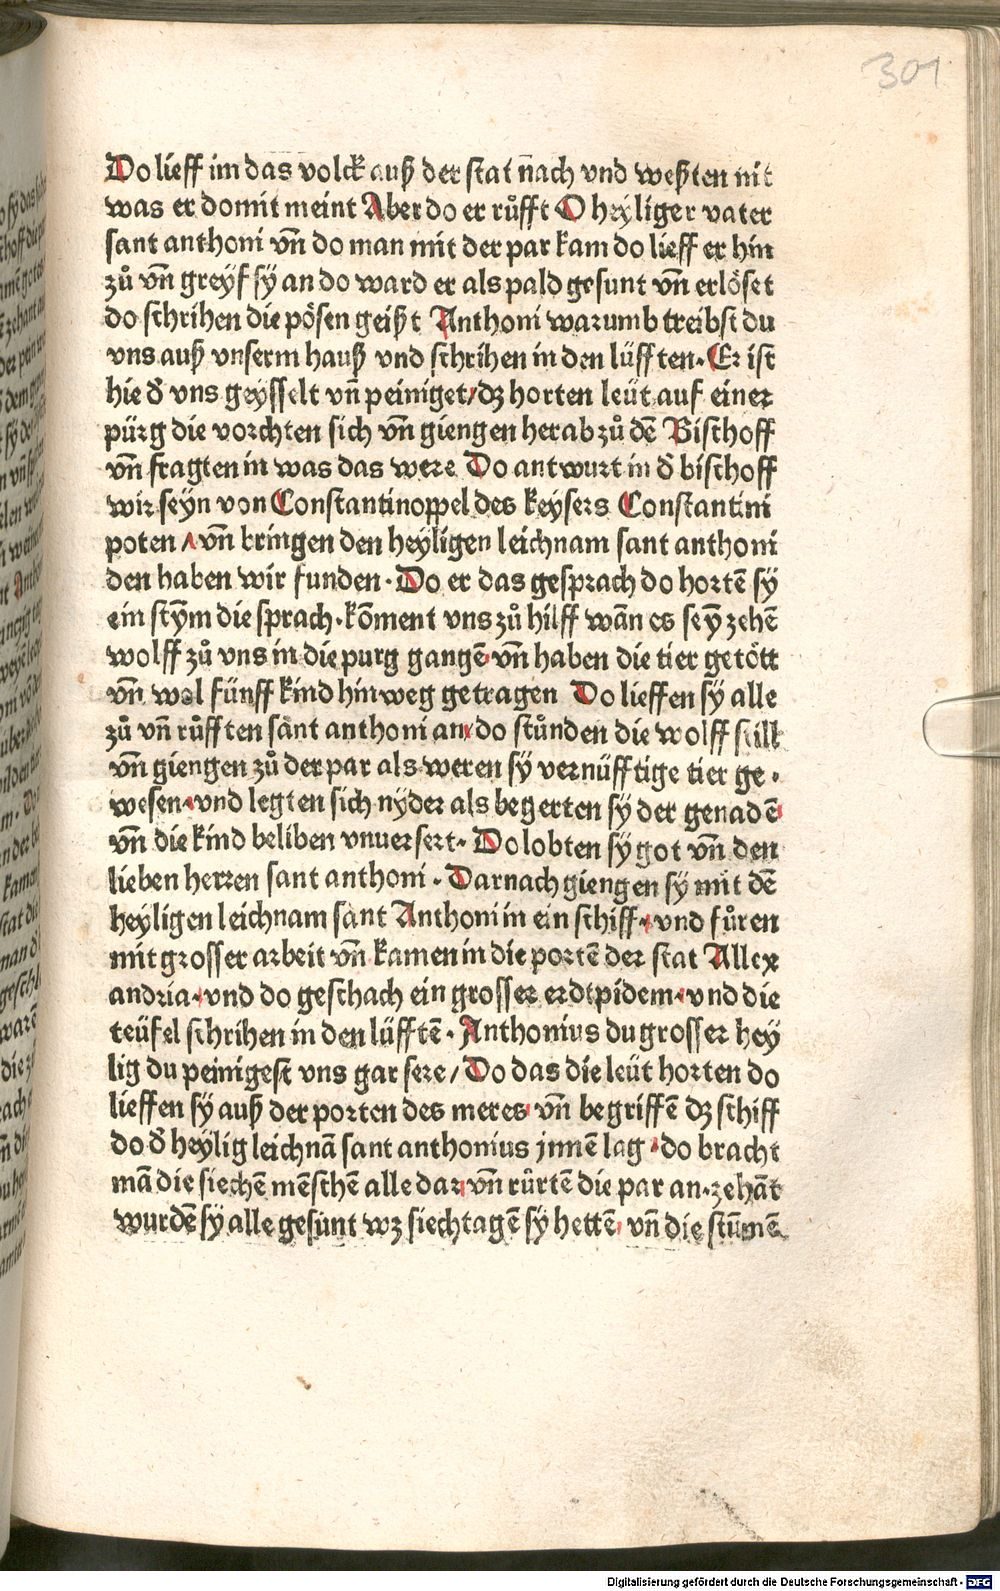 301
Do lieff im das volck auß der stat nach vnd weßten nit
was er domit meint Aber do er růfft O heyliger vater
sant anthoni vn̄ do man mit der par kam do lieff er hin
zů vn̄ greyf sy an do ward er als pald gesunt vn̄ erlöset
do schrihen die pösen geißt Anthoni warumb treibst du
vns auß vnserm hauß vnd schrihen in den lüfften. Er ist
hie d̄ vns geysselt vn̄ peiniget/ dz horten leüt auf einer
pürg die vorchten sich vn̄ giengen herab zů dē Bischoff
vn̄ fragten in was das were Do antwurt in d̄ bischoff
wir seyn von Constantinoppel des keysers Constantini
poten / vn̄ bringen den heyligen leichnam sant anthoni
den haben wir funden. Do er das gesprach do hortē sy
ein stym̄ die sprach. kōment vns zů hilff wān es seȳ zehē
wolff zů vns in die purg gangē vn̄ haben die tier getött
vn̄ wol fünff kind hinweg getragen Do lieffen sy alle
zů vn̄ růfften sant anthoni an/ do stůnden die wolff still
vn̄ giengen zů der par als weren sy vernüfftige tier ge-
wesen. vnd legten sich nyder als begerten sy der genadē
vn̄ die kind beliben vnuersert. Do lobten sy got vn̄ den
lieben herren sant anthoni. Darnach giengen sy mit dē
heyligen leichnam sant Anthoni in ein schiff. vnd fůren
mit grosser arbeit vn̄ kamen in die portē der stat Allex
andria. vnd do geschach ein grosser erdtpidem. vnd die
teüfel schrihen in den lüfftē. Anthonius du grosser hey
lig du peinigest vns gar sere/ Do das die leüt horten do
lieffen sy auß der porten des meres vn̄ begriffē dz schiff
do d̄ heylig leichnā sant anthonius jnnē lag. do bracht
mā die siechē mēschē alle dar vn̄ rürtē die par an. zehāt
wurdē sy alle gesünt wz siechtagē sy hettē vn̄ die stūmē
Digitalisierung gefördert durch die Deutsche Forschungsgemeinschaft - DFG